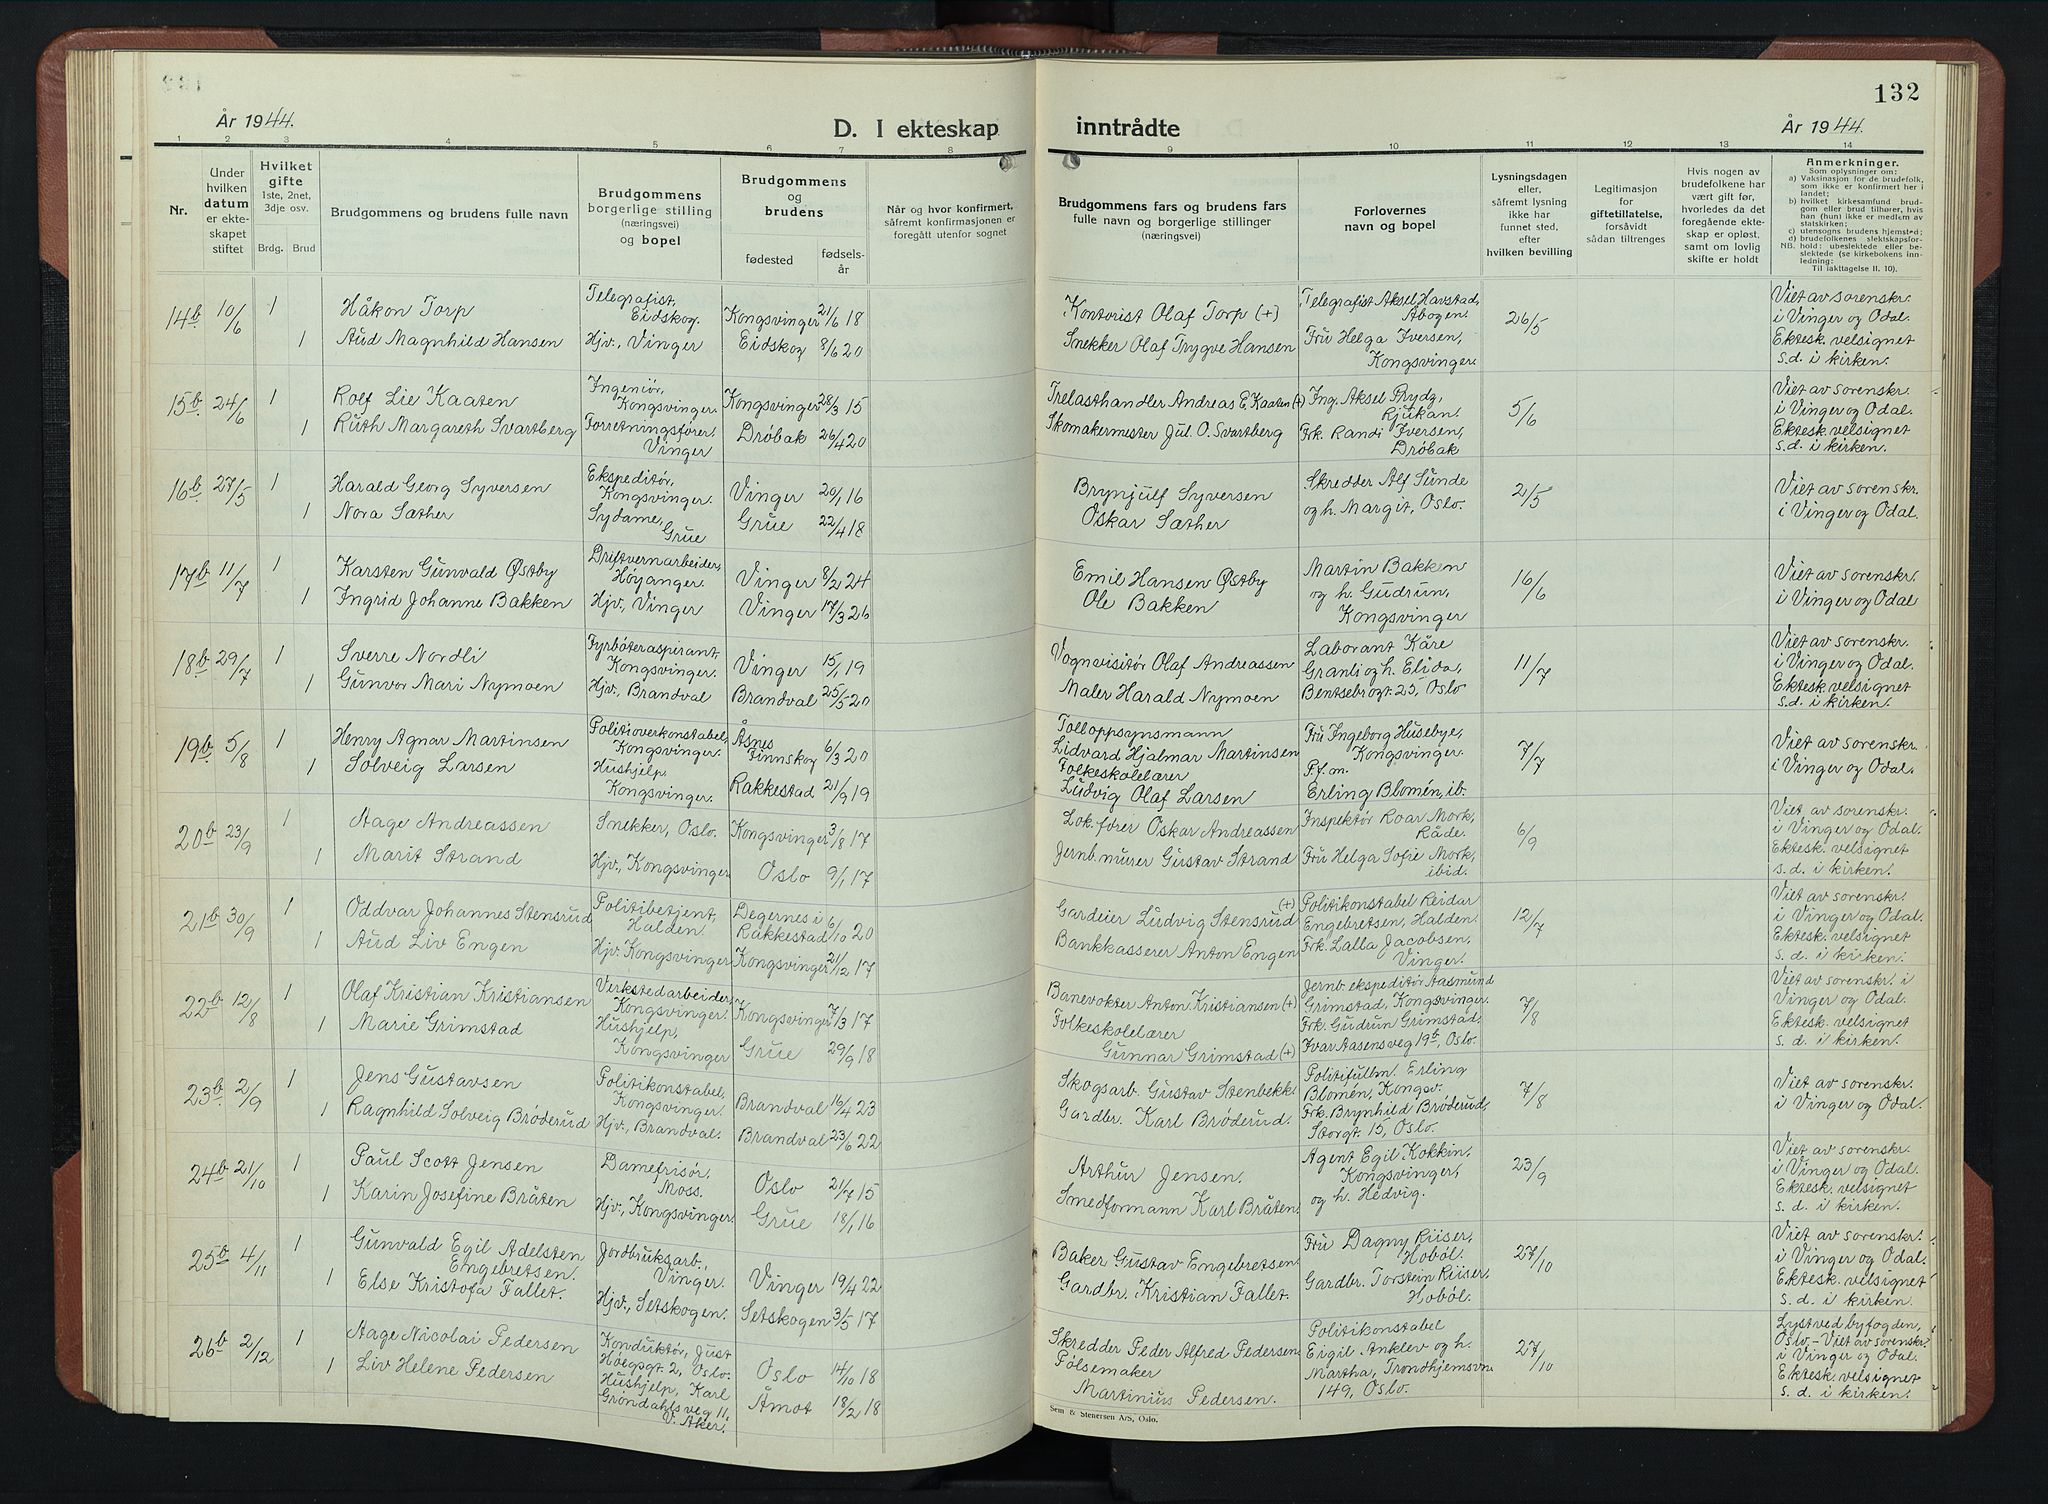 132
År 1944.
D. I ekteskap inntrådte
År 1944.
1 2 3 4 5 6 7 8 9 10 11 12 13 14
Nr.
Under hvilken datum er ekteskapet stiftet
Hvilket gifte 1ste, 2net, 3dje osv.
Brdg. Brud
Brudgommens og brudens fulle navn
Brudgommens borgerlige stilling (næringsvei) og bopel
Brudgommens og brudens
fødested
fødselsår
Når og hvor konfirmert, såfremt konfirmasjonen er foregått utenfor sognet
Brudgommens fars og brudens fars fulle navn og borgerlige stillinger (næringsvei)
Forlovernes navn og bopel
Lysningsdagen eller, såfremt lysning ikke har funnet sted, efter hvilken bevilling
Legitimasjon for giftetillatelse, forsåvidt sådan tiltrenges
Hvis nogen av brudefolkene har vært gift før, hvorledes da det foregående ekteskap er opløst, samt om lovlig skifte er holdt
Anmerkninger.
Som oplysninger om:
a) Vaksinasjon for de brudefolk, som ikke er konfirmert her i landet;
b) hvilket kirkesamfund brudgom eller brud tilhører, hvis han (hun) ikke er medlem av statskirken;
c) utensogns brudens hjemsted;
d) brudefolkenes slektskapsforhold: ubeslektede eller beslektede (se kirkebokens innledning:
NB.
Til iakttagelse II. 10).
14b 10/6 1 Håkon Torp Telegrafist, Eidskog. Kongsvinger 21/6 18 Kontorist Olaf Torp (+) Telegrafist Aksel Havstad, Åbogen. 26/5 Viet av sorenskr. i Vinger og Odal. Ektesk. velsignet s.d. i kirken.
1 Aud Magnhild Hansen Hjv., Vinger Eidskog 8/6 20 Snekker Olaf Trygve Hansen Fru Helga Iversen, Kongsvinger.
15b 24/6 1 Rolf Lie Kaaten Ingeniør, Kongsvinger. Kongsvinger 28/3 15 Trelasthandler Andreas E. Kaaten (+) Ing. Aksel Prydz, Rjukan. 5/6 Viet av sorenskr. i Vinger og Odal. Ektesk. velsignet s.d. i kirken.
1 Ruth Margareth Svartberg Forretningsfører. Vinger Drøbak 26/4 20 Skomakermester Jul. O. Svartberg Frk. Randi Iversen, Drøbak
16b 27/5 1 Harald Georg Syversen Ekspeditør, Kongsvinger. Vinger 20/1 16 Brynjulf Syversen Skredder Alf Sunde og h. Margit, Oslo. 2/5 Viet av sorenskr. i Vinger og Odal.
1 Nora Sæther Sydame, Grue Grue 22/4 18 Oskar Sæther
17b 11/7 1 Karsten Gunvald Østby Driftvernarbeider, Høyanger. Vinger 8/2 24 Emil Hansen Østby Martin Bakken og h. Gudrun, Kongsvinger 16/6 Viet av sorenskr. i Vinger og Odal
1 Ingrid Johanne Bakken Hjv., Vinger Vinger 17/3 26 Ole Bakken
18b 29/7 1 Sverre Nordli Fyrbøteraspirant, Kongsvinger. Vinger 15/1 19 Vognvisitør Olaf Andreassen Laborant Kåre Granli og h. Elida, Bentsebrogt. 25, Oslo 11/7 Viet av sorenskr. i Vinger og Odal. Ektesk. velsignet s.d. i kirken.
1 Gunvor Mari Nymoen Hjv., Brandval Brandval 25/5 20 Maler Harald Nymoen
19b 5/8 1 Henry Agnar Martinsen Politioverkonstabel, Kongsvinger. Åsnes Finnskog 6/3 20 Tolloppsynsmann Lidvard Hjalmar Martinsen Fru Ingeborg Husebye, Kongsvinger. 7/7 Viet av sorenskr. i Vinger og Odal.
1 Solveig Larsen Hushjelp, Kongsvinger. Rakkestad 21/9 19 Folkeskolelærer Ludvig Olaf Larsen P.f.m. Erling Blomén, ib.
20b 23/9 1 Aage Andreassen Snekker, Oslo. Kongsvinger 3/8 17 Lok.fører Oskar Andreassen Inspektør Roar Mork, Råde. 6/9 Viet av sorenskr. i Vinger og Odal. Ektesk. velsignet s.d. i kirken.
1 Marit Strand Hjv., Kongsvinger Oslo 9/1 17 Jernb.murer Gustav Strand Fru Helga Sofie Mork, ibid.
21b 30/9 1 Oddvar Johannes Stensrud Politibetjent, Halden. Degernes i Rakkestad 6/10 20 Gardeier Ludvig Stensrud (+) Politikonstabel Reidar Engebretsen, Halden. 12/7 Viet av sorenskr. i Vinger og Odal. Ektesk. velsignet s.d. i kirken.
1 Aud Liv Engen Hjv. Kongsvinger Kongsvinger 21/12 17 Bankkasserer Anton Engen Frk. Lalla Jacobsen, Vinger.
22b 12/8 1 Olaf Kristian Kristiansen Verkstedarbeider, Kongsvinger. Kongsvinger 7/3 17 Banevokter Anton Kristiansen (+) Jernb.ekspeditør Aasmund Grimstad, Kongsvinger. 7/8 Viet av sorenskr. i Vinger og Odal. Ektesk. velsignet s.d. i kirken.
1 Marie Grimstad Hushjelp, Kongsvinger Grue 29/9 18 Folkeskolelærer Gunnar Grimstad (+) Frk. Gudrun Grimstad, Ivar Aasens veg 19b, Oslo.
23b 2/9 1 Jens Gustavsen Politikonstabel, Kongsvinger. Brandval 16/4 23 Skogsarb. Gustav Stenbekk. Politifullm. Erling Blomén, Kongsv. 7/8 Viet av sorenskr. i Vinger og Odal.
1 Ragnhild Solveig Brøderud Hjv., Brandval. Brandval 23/6 22 Gardbr. Karl Brøderud. Frk. Brynhild Brøderud, Storgt. 15, Oslo.
24b 21/10 1 Paul Scott Jensen Damefrisør, Moss. Oslo 21/7 15 Arthur Jensen. Agent Egil Kokkin, Kongsvinger, og h. Hedvig. 23/9 Viet av sorenskr. i Vinger og Odal. Ektesk. velsignet s.d. i kirken.
1 Karin Josefine Bråten Hjv., Kongsvinger. Grue 18/1 16 Smedformann Karl Bråten.
25b 4/11 1 Gunvald Egil Adelsten Engebretsen. Jordbruksarb., Vinger. Vinger 19/4 22 Baker Gustav Engebretsen. Fru Dagny Riiser, Hobøl. 27/10 Viet av sorenskr. i Vinger og Odal. Ektesk. velsignet s.d. i kirken.
1 Else Kristofa Fallet. Hjv., Setskogen. Setskogen 3/5 17 Gardbr. Kristian Fallet. Gardbr. Torstein Riiser, Hobøl.
26b 2/12 1 Aage Nicolai Pedersen Konduktør, Just Høegsgt. 2, Oslo. Oslo 14/10 18 Skredder Peder Alfred Pedersen. Politikonstabel Eigil Anklev og h. Martha, Trondhjemsvn. 149, Oslo. 27/10 Lyst ved byfogden, Oslo. – Viet av sorenskr. i Vinger og Odal. Ektesk. velsignet s.d. i kirken.
1 Liv Helene Pedersen Hushjelp, Karl Grøndahls veg 11, V. Aker. Åmot 18/2 18 Pølsemaker Martinius Pedersen.
Sem & Stenersen A/S, Oslo.